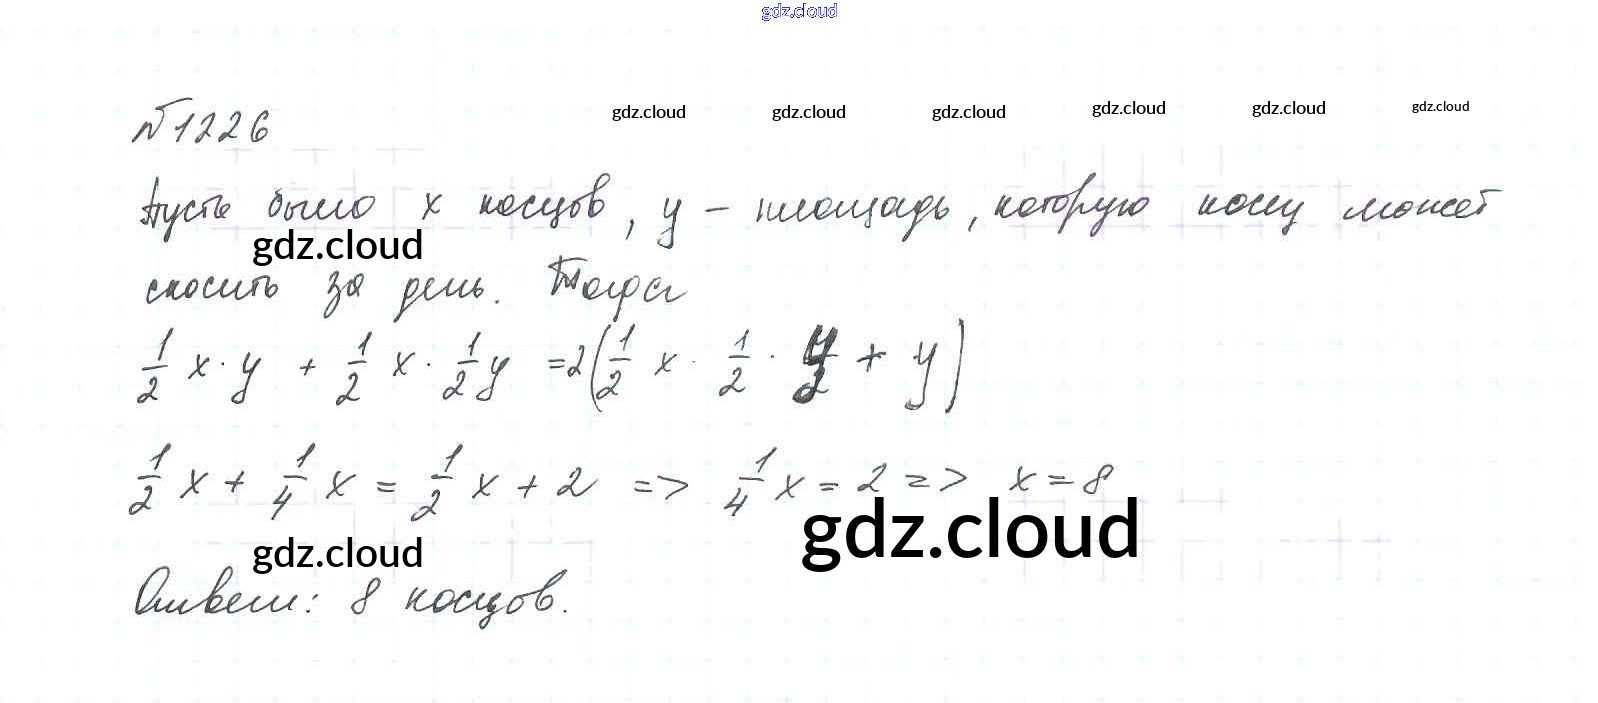 gdz.cloud
№1226 gdz.cloud gdz.cloud gdz.cloud gdz.cloud gdz.cloud gdz.cloud
Пусть было x косцов, y – площадь, которую косец может
gdz.cloud
скосить за день. Тогда
1/2 x · y + 1/2 x · 1/2 y = 2(1/2 x · 1/2 · y/2 + y)
1/2 x + 1/4 x = 1/2 x + 2 => 1/4 x = 2 => x = 8
gdz.cloud
gdz.cloud
Ответ: 8 косцов.